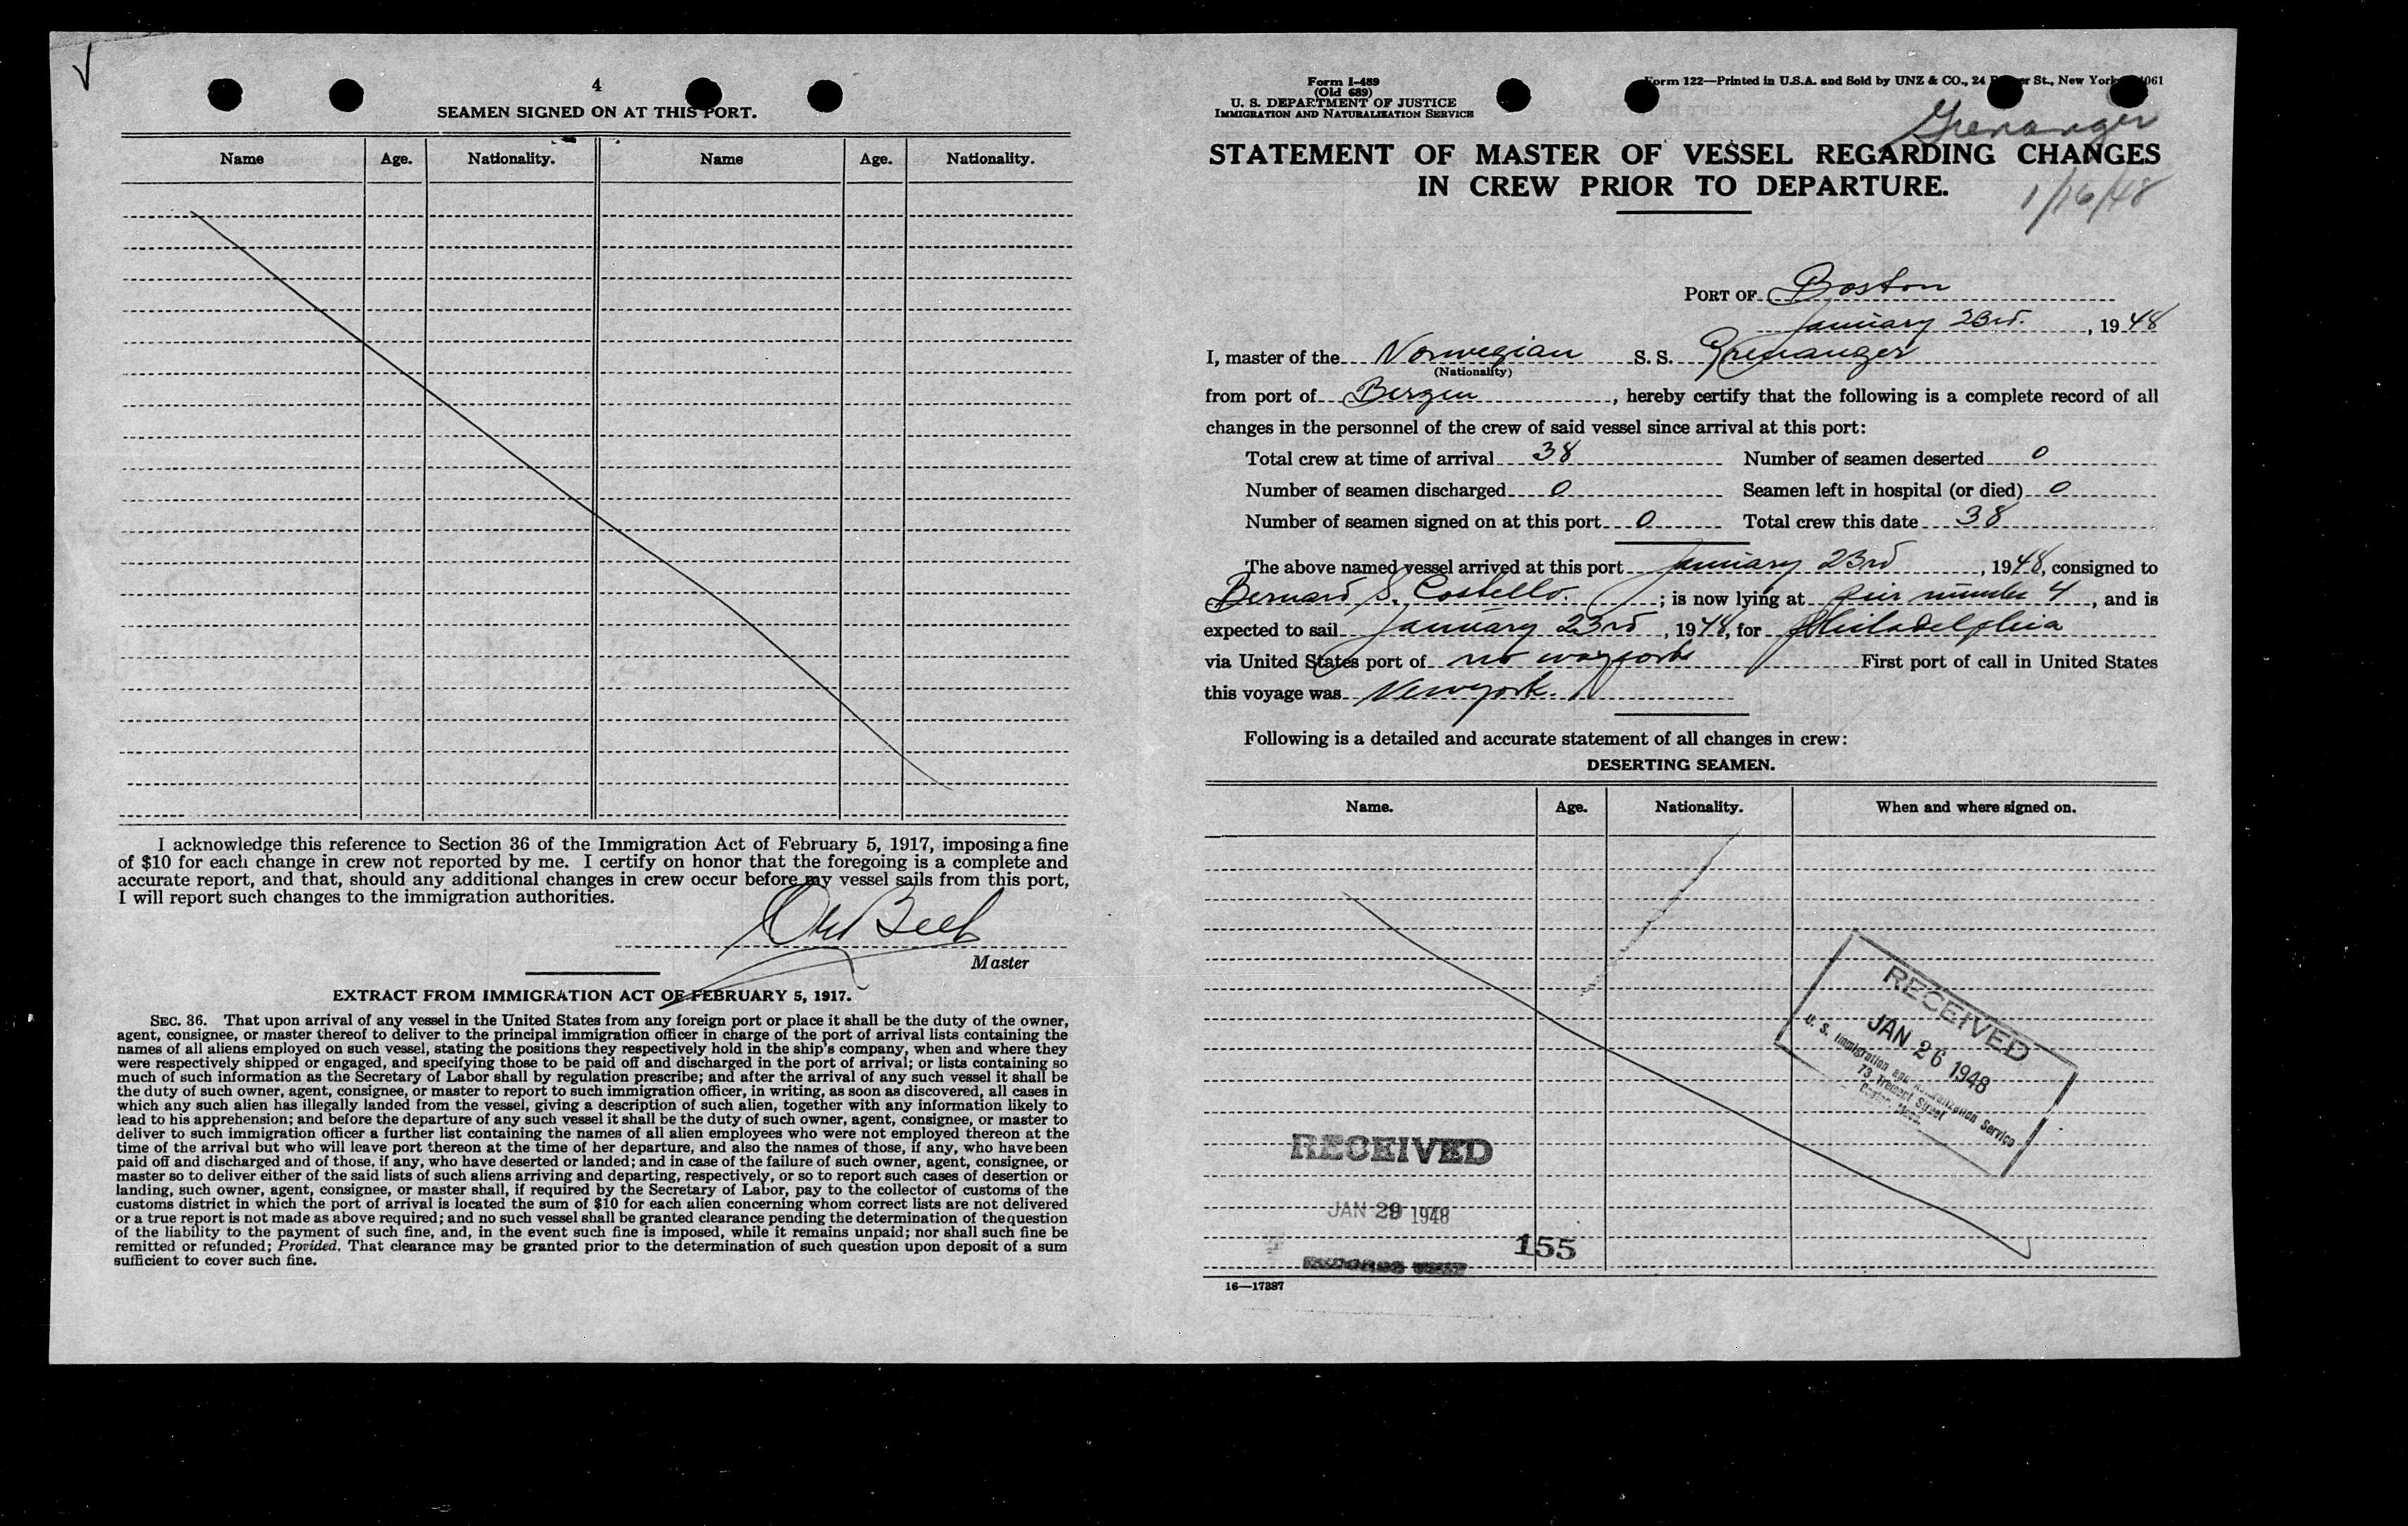 4
SEAMEN SIGNED ON AT THIS PORT.
Name Age. Nationality. Name Age. Nationality.
I acknowledge this reference to Section 36 of the Immigration Act of February 5, 1917, imposing a fine
of $10 for each change in crew not reported by me. I certify on honor that the foregoing is a complete and
accurate report, and that, should any additional changes in crew occur before my vessel sails from this port,
I will report such changes to the immigration authorities.
Master
EXTRACT FROM IMMIGRATION ACT OF FEBRUARY 5, 1917.
SEC. 36. That upon arrival of any vessel in the United States from any foreign port or place it shall be the duty of the owner,
agent, consignee, or master thereof to deliver to the principal immigration officer in charge of the port of arrival lists containing the
names of all aliens employed on such vessel, stating the positions they respectively hold in the ship's company, when and where they
were respectively shipped or engaged, and specifying those to be paid off and discharged in the port of arrival; or lists containing so
much of such information as the Secretary of Labor shall by regulation prescribe; and after the arrival of any such vessel it shall be
the duty of such owner, agent, consignee, or master to report to such immigration officer, in writing, as soon as discovered, all cases in
which any such alien has illegally landed from the vessel, giving a description of such alien, together with any information likely to
lead to his apprehension; and before the departure of any such vessel it shall be the duty of such owner, agent, consignee, or master to
deliver to such immigration officer a further list containing the names of all alien employees who were not employed thereon at the
time of the arrival but who will leave port thereon at the time of her departure, and also the names of those, if any, who have been
paid off and discharged and of those, if any, who have deserted or landed; and in case of the failure of such owner, agent, consignee, or
master so to deliver either of the said lists of such aliens arriving and departing, respectively, or so to report such cases of desertion or
landing, such owner, agent, consignee, or master shall, if required by the Secretary of Labor, pay to the collector of customs of the
customs district in which the port of arrival is located the sum of $10 for each alien concerning whom correct lists are not delivered
or a true report is not made as above required; and no such vessel shall be granted clearance pending the determination of the question
of the liability to the payment of such fine, and, in the event such fine is imposed, while it remains unpaid; nor shall such fine be
remitted or refunded; Provided, That clearance may be granted prior to the determination of such question upon deposit of a sum
sufficient to cover such fine.
Form I-489
(Old 689)
U. S. DEPARTMENT OF JUSTICE
IMMIGRATION AND NATURALIZATION SERVICE
Form 122—Printed in U.S.A. and Sold by UNZ & CO., 24 St., New York
Grenanger
STATEMENT OF MASTER OF VESSEL REGARDING CHANGES
IN CREW PRIOR TO DEPARTURE.
1/16/48
PORT OF Boston
January 23rd. , 1948
I, master of the Norwegian S. S. Grenanger
(Nationality)
from port of Bergen , hereby certify that the following is a complete record of all
changes in the personnel of the crew of said vessel since arrival at this port:
Total crew at time of arrival 38 Number of seamen deserted 0
Number of seamen discharged 0 Seamen left in hospital (or died) 0
Number of seamen signed on at this port 0 Total crew this date 38
The above named vessel arrived at this port January 23rd , 1948, consigned to
Bernard S. Costello. ; is now lying at pier number 4 , and is
expected to sail January 23rd , 1948, for Philadelphia
via United States port of no wayports First port of call in United States
this voyage was Newyork.
Following is a detailed and accurate statement of all changes in crew:
DESERTING SEAMEN.
Name. Age. Nationality. When and where signed on.
RECEIVED
JAN 26 1948
U. S. Immigration and Naturalization Service
73 Tremont Street
Boston, Mass.
RECEIVED
JAN 29 1948
155
16—17387